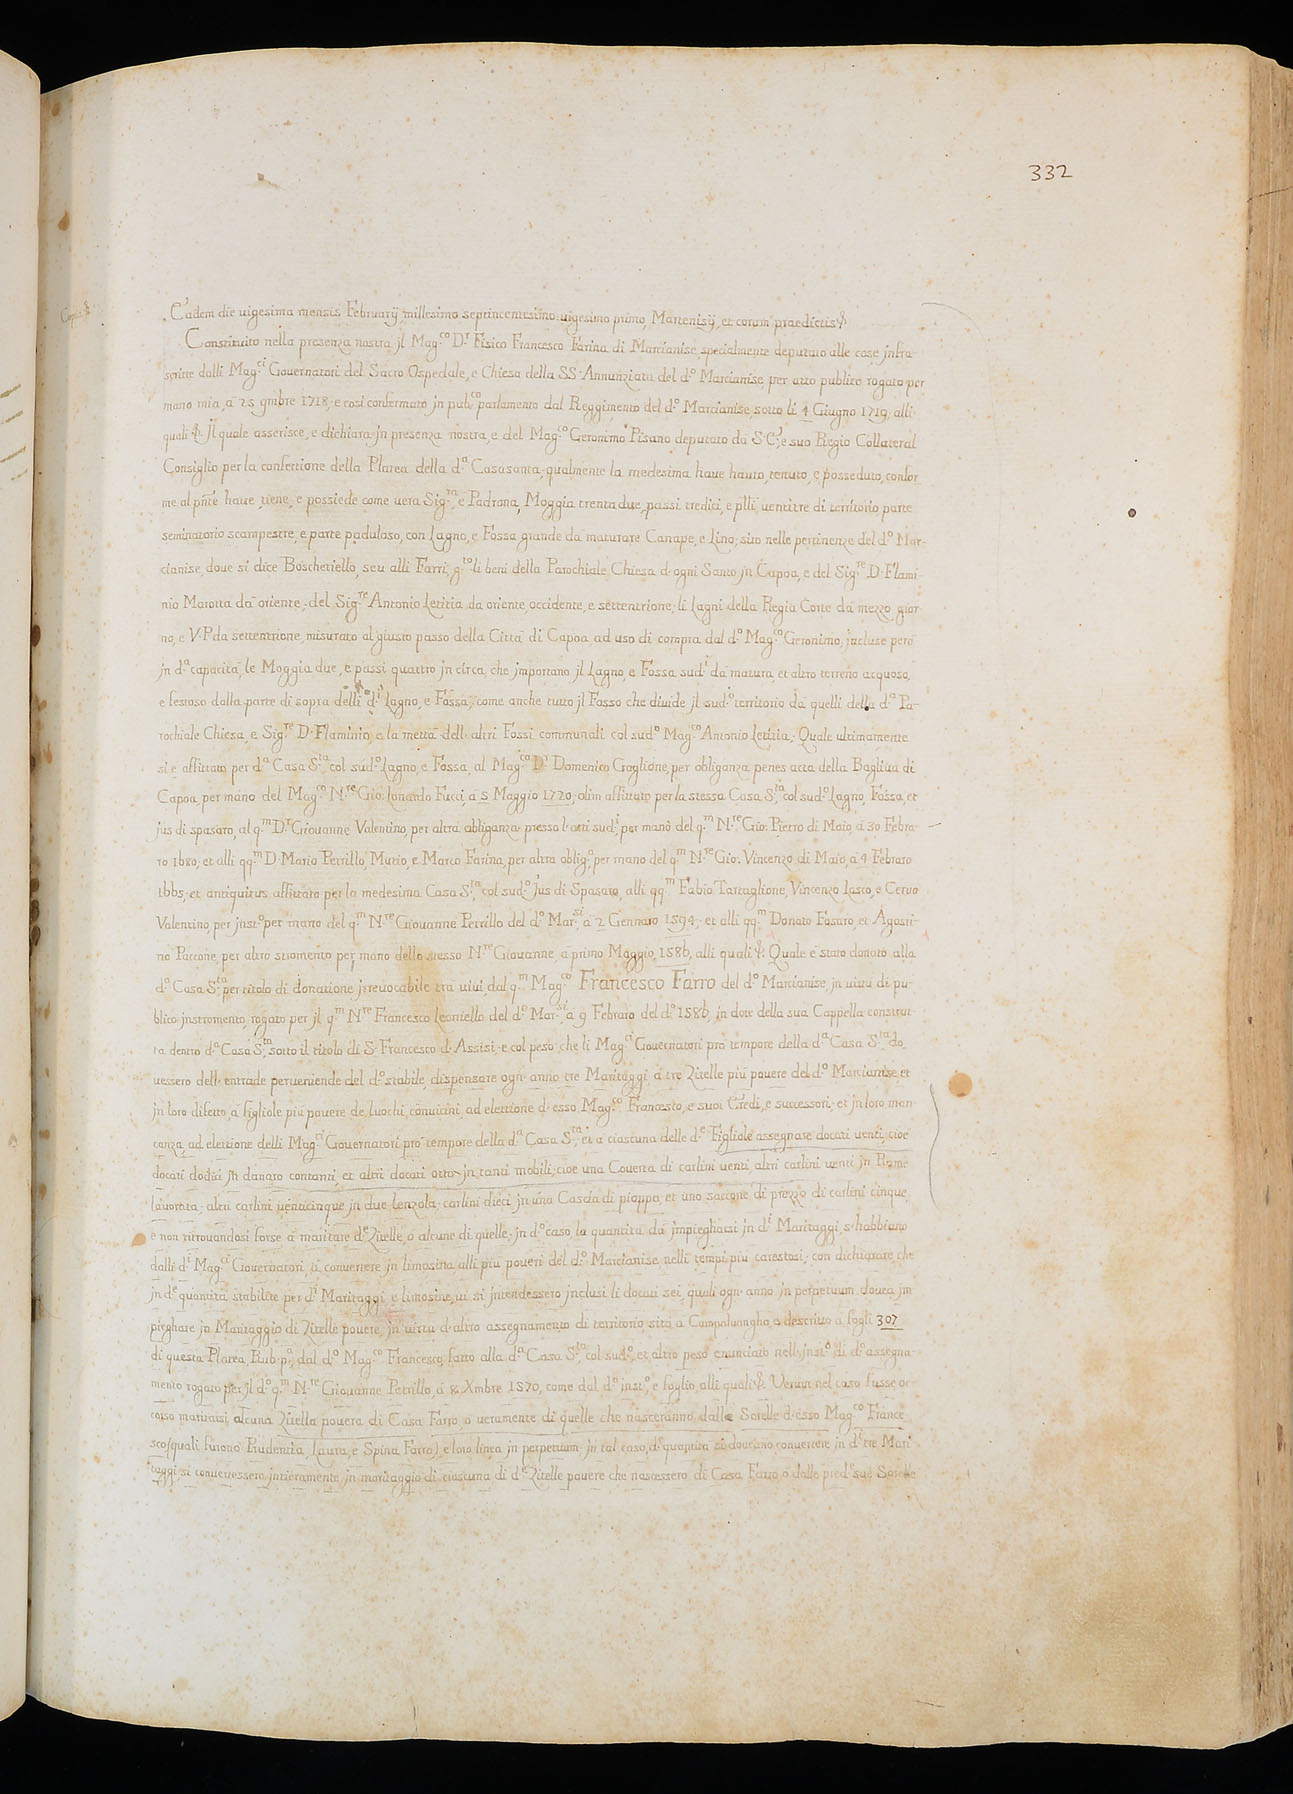 332
Eadem die uigesima mensis Februarij millesimo septincentesimo uigesimo primo, Martenisij, et coram praedictis &
Constituito nella presenza nostra jl Mag.co D.r Fisico Francesco Farina di Marcianise, specialmente deputato alle cose jnfra-
scritte dalli Mag.ci Gouernatori del Sacro Ospedale, e Chiesa della SS. Annunziata del d.o Marcianise, per atto publico rogato per
mano mia, à 25 9mbre 1718, e così confermato jn pub.co parlamento dal Reggimento del d.o Marcianise sotto li 4 Giugno 1719, alli
quali &. Jl quale asserisce, e dichiara jn presenza nostra, e del Mag.co Geronimo Pisano deputato da S.E., e suo Regio Collateral
Consiglio per la confettione della Platea della d.a Casasanta, qualmente la medesima haue hauto, tenuto, e posseduto, confor
me al pnte haue, tiene, e possiede come uera Sig.ra, e Padrona, Moggia trenta due, passi tredici, e plli uentitre di territorio parte
seminatorio scampestre, e parte paduloso, con Lagno, e Fossa grande da maturare Canape, e Lino; sito nelle pertinenze del d.o Mar-
cianise, doue si dice Boschetiello, seu alli Farri, g.to li beni della Parochiale Chiesa d'ogni Santo jn Capoa, e del Sig.re D. Flami-
nio Marotta da oriente, del Sig.re Antonio Letitia da oriente, occidente, e settentrione, li Lagni della Regia Corte da mezzo gior-
no, e V.P. da settentrione, misurato al giusto passo della Città di Capoa, ad uso di compra dal d.o Mag.co Geronimo, jncluse però
jn d.a capacità, le Moggia due, e passi quattro jn circa, che jmportano jl Lagno, e Fossa sud.i da matura, et altro terreno acquoso,
e lestoso dalla parte di sopra delli d.i Lagno, e Fossa, come anche tutto jl Fosso che diuide jl sud.o territorio da quelli della d.a Pa-
rochiale Chiesa, e Sig.re D. Flaminio, e la mettà dell'altri Fossi communali col sud.o Mag.co Antonio Letitia; Quale ultimamente
si è affittato per d.a Casa S.ta col sud.o Lagno, e Fossa, al Mag.co D.r Domenico Gaglione, per obliganza penes acta della Bagliua di
Capoa, per mano del Mag.co N.re Gio: Lonardo Fucci, à 5 Maggio 1720, olim affittato per la stessa Casa S.ta col sud.o Lagno, Fossa, et
jus di spasaro, al q.m D.r Giouanne Valentino, per altra obliganza presso l'atti sud.i, per mano del q.m N.re Gio: Pietro di Maio, à 30 Febra-
ro 1680; et alli qq.m D. Mario Petrillo, Mutio, e Marco Farina, per altra oblig.a, per mano del q.m N.re Gio: Vincenzo di Maio, à 4 Febraro
1665; et antiquitus affittato per la medesima Casa S.ta, col sud.o Jus di Spasaro, alli qq.m Fabio Tartaglione, Vincenzo Lasco, e Ceruo
Valentino, per jnst.o per mano del q.m N.re Giouanne Petrillo del d.o Mar.si à 2 Gennaro 1594; et alli qq.m Donato Fosaro, et Agosti-
no Paccone, per altro stromento per mano dello stesso N.re Giouanne, à primo Maggio, 1586, alli quali &. Quale è stato donato alla
d.a Casa S.ta per titolo di donatione jrreuocabile tra uiui, dal q.m Mag.co Francesco Farro del d.o Marcianise, jn uirtù di pu-
blico jnstromento, rogato per jl q.m N.re Francesco Leoniello del d.o Mar.si à 9 Febraro del d.o 1586, jn dote della sua Cappella construt-
ta dentro d.a Casa S.ta sotto il titolo di S. Francesco d'Assisi, e col peso che li Mag.ci Gouernatori pro tempore della d.a Casa S.ta do-
uessero dell'entrade perueniende del d.o stabile, dispensare ogn'anno tre Maritaggi à tre Zitelle più pouere del d.o Marcianise, et
jn loro difetto, à figliole più pouere de luochi conuicini, ad elettione d'esso Mag.co Francesco, e suoi Eredi, e successori, et jn loro man-
canza, ad elettione delli Mag.ci Gouernatori pro tempore della d.a Casa S.ta; et à ciascuna delle d.e Figliole assegnare docati uenti, cioè
docati dodici jn danaro contanti, et altri docati otto jn tanti mobili, cioè una Couerta di carlini uenti, altri carlini uenti jn Rame
lauorata, altri carlini uenticinque jn due lenzola, carlini dieci jn una Cascia di pioppo, et uno saccone di prezzo di carlini cinque
e non ritrouandosi forse à maritare d.e Zitelle, ò alcune di quelle, jn d.o caso, la quantità da jmpiegharsi jn d.i Maritaggi s'habbiano
dalli d.i Mag.ci Gouernatori, à conuertere jn limosina alli più poueri del d.o Marcianise nelli tempi più carestosi, con dichiarare che
jn d.e quantità stabilite per d.i Maritaggi e limosine, ui si jntendessero jnclusi li docati sei, quali ogn'anno jn perpetuum doueа jm
pieghare jn Maritaggio di Zitelle pouere, jn uirtù d'altro assegnamento di territorio sito à Campoluongho, descritto à fogli 307
di questa Platea, Rub. p.a, dal d.o Mag.co Francesco, fatto alla d.a Casa S.ta, col sud.o, et altro peso enunciato nell'jnst.o di d.o assegna-
mento rogato per jl d.o q.m N.re Giouanne Petrillo, à 8 Xmbre 1570, come dal d.o jnst.o e foglio, alli quali &. Verum nel caso fusse oc-
corso maritarsi alcuna Zitella pouera di Casa Farro, o ueramente di quelle che nasceranno dalle Sorelle d'esso Mag.co France-
sco (quali furono Prudentia, Laura, e Spina Farro) e loro linea jn perpetuum, jn tal caso, d.e quantità si doueano conuertere jn d.i tre Mari
taggi, si conuertessero jntieramente jn maritaggio di ciascuna di d.e Zitelle pouere che nascessero di Casa Farro, ò dalle pred.e sue Sorelle